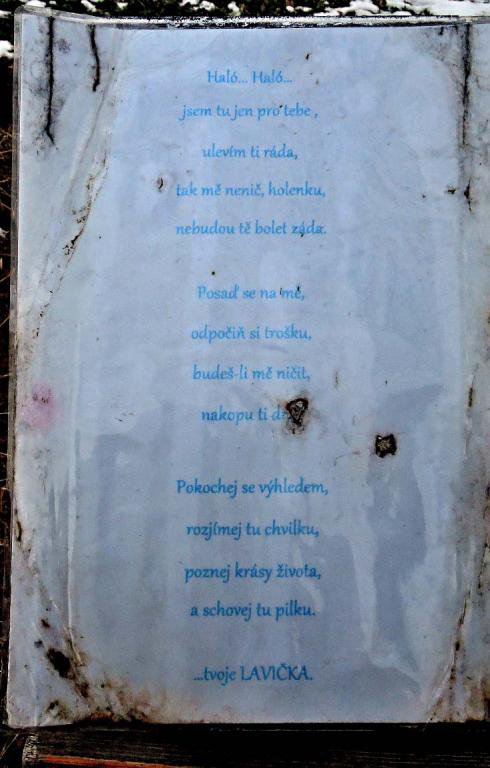 Haló... Haló...
jsem tu jen pro tebe ,
ulevím ti ráda,
tak mě nenič, holenku,
nebudou tě bolet záda.
Posaď se na mě,
odpočiň si trošku,
budeš-li mě ničit,
nakopu ti
Pokochej se výhledem,
rozjímej tu chvilku,
poznej krásy života,
a schovej tu pilku.
...tvoje LAVIČKA.